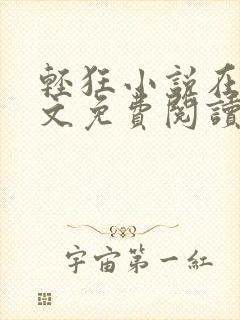 輕狂小說在
文免費閱讀
宇宙第一紅